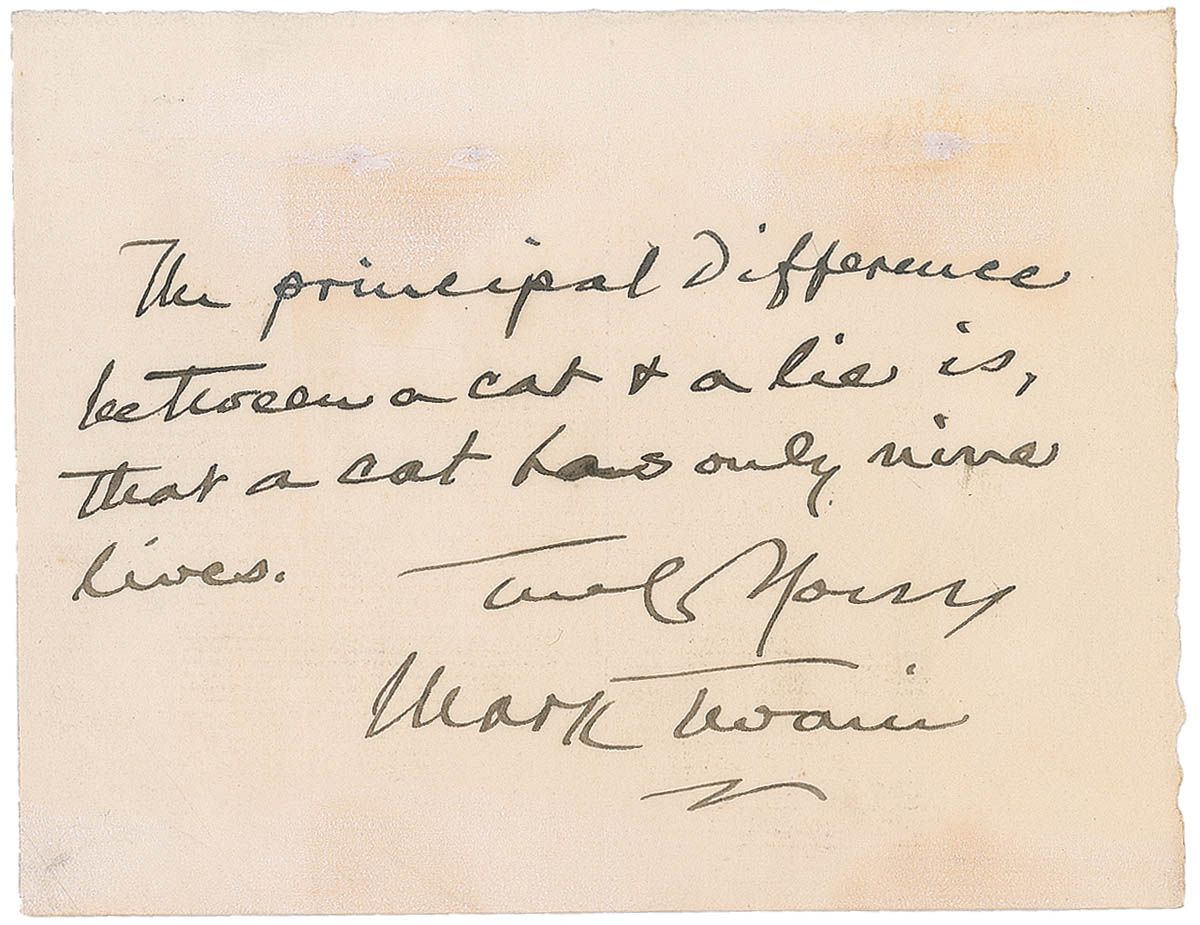 The principal difference
between a cat & a lie is,
that a cat has only nine
lives.
Truly Yours
Mark Twain